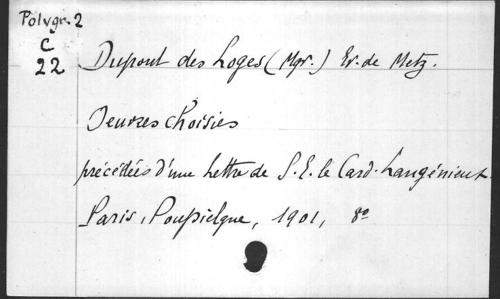 Polygr. 2
C
22
Dupont des Loges (Mgr.) Ev. de Metz.
Oeuvres choisies
précédées d'une Lettre de S. E. le Card. Langénieux.
Paris, Poussielgue, 1901, 8º